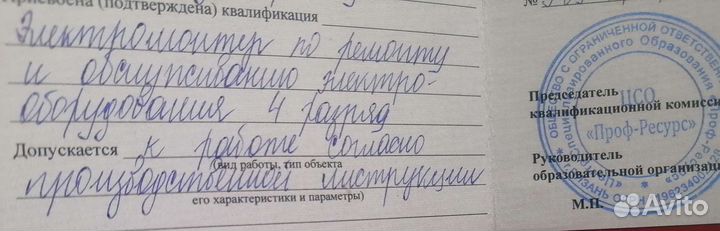 Присвоена (подтверждена) квалификация
Электромонтер по ремонту
и обслуживанию электро-
оборудования 4 разряд
Допускается к работе согласно
(вид работы, тип объекта
производственной инструкции
его характеристики и параметры)
№
Председатель
квалификационной комиссии
Руководитель
образовательной организации
М.П.
ОБЩЕСТВО С ОГРАНИЧЕННОЙ ОТВЕТСТВЕН
ЦСО
"Проф-Ресурс"
Avito